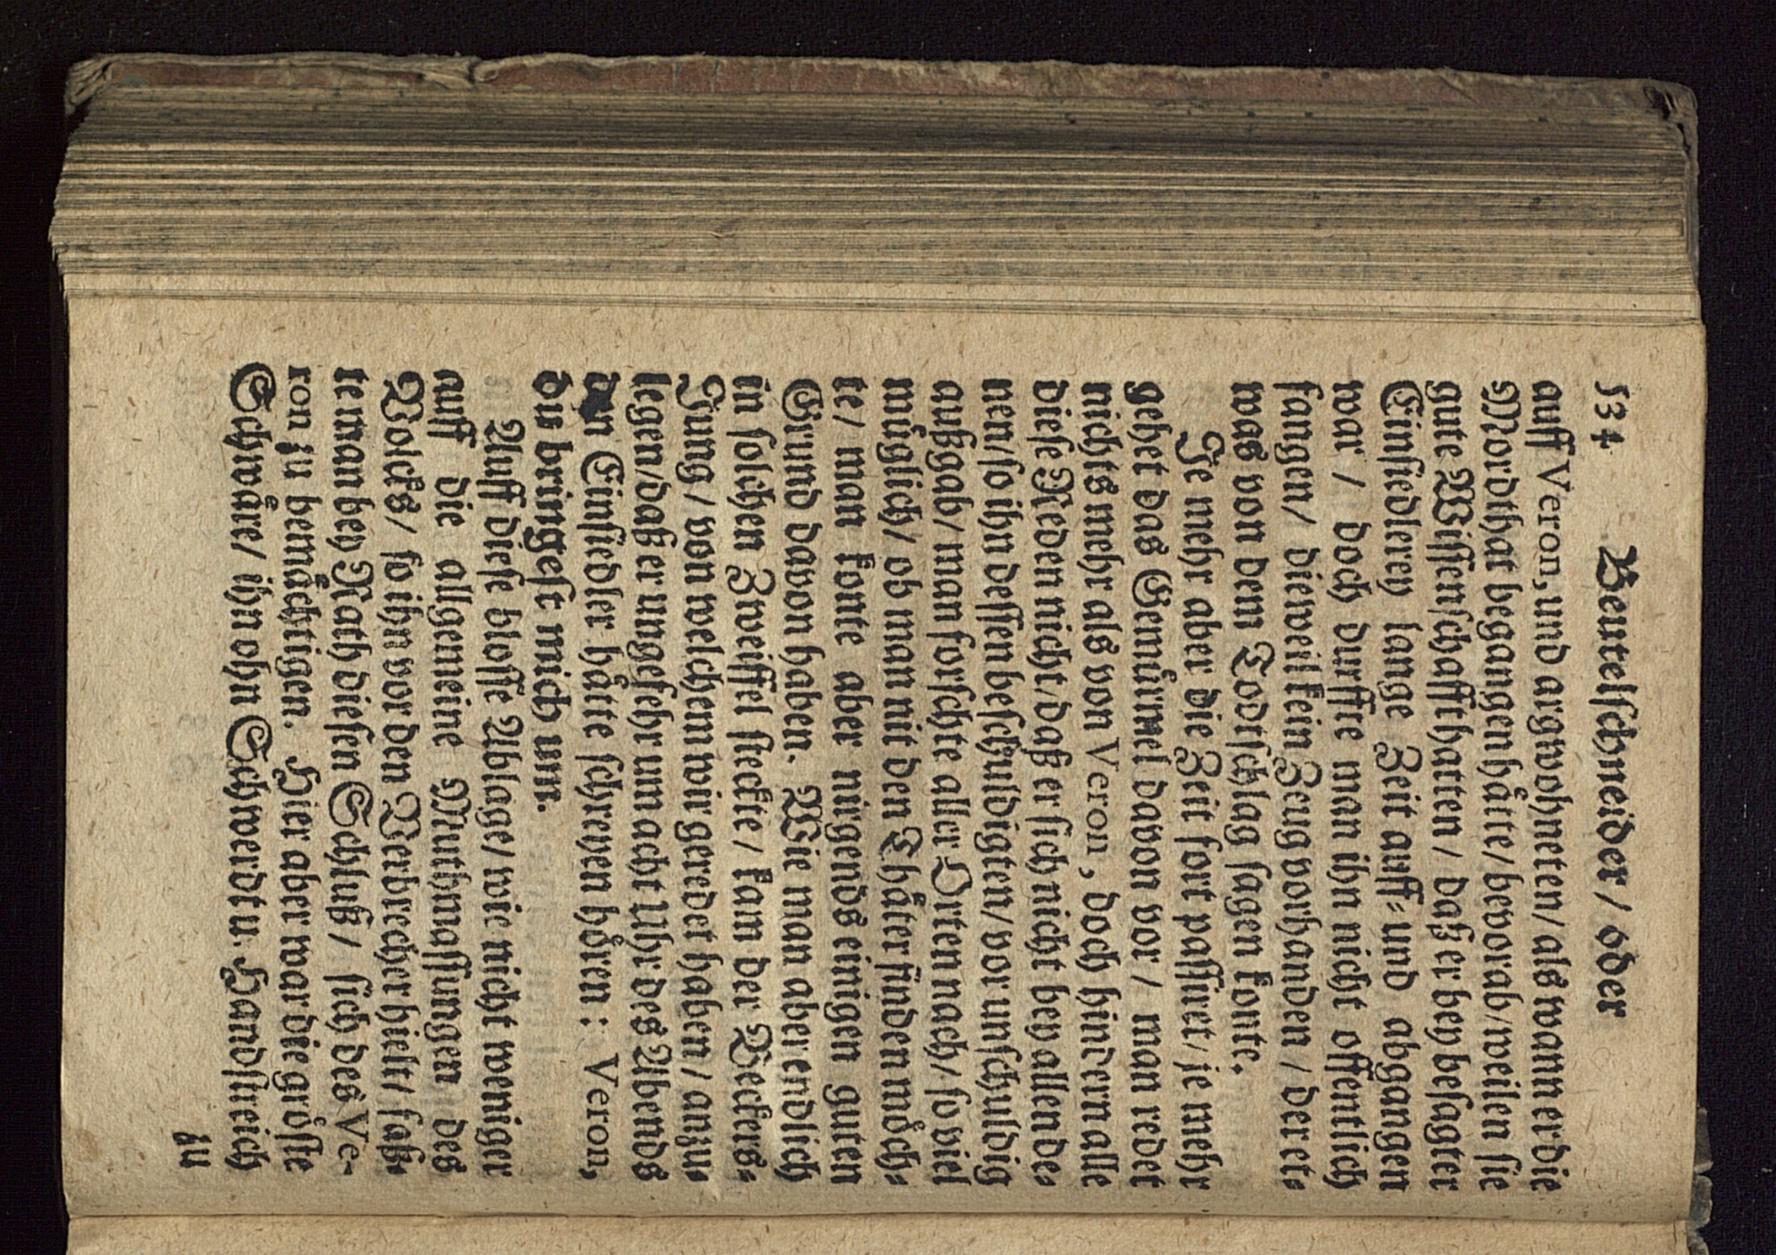 534 Beutelschneider / oder
auff Veron, und argwohneten / als wann er die
Mordthat begangen håtte / bevorab / weilen sie
gute Wissenschafft hatten / daß er bey besagter
Einsiedlerey lange Zeit auff= und abgangen
war / doch durffte man ihn nicht offentlich
fangen / dieweil kein Zeug vorhanden / der et=
was von dem Todtschlag sagen konte.
Je mehr aber die Zeit fort passiret / je mehr
gehet das Gemůrmel davon vor / man redet
nichts mehr als von Veron, doch hindern alle
diese Reden nicht / daß er sich nicht bey allen de=
nen / so ihn dessen beschuldigten / vor unschuldig
außgab / man forschte aller Orten nach / so viel
můglich / ob man nit den Thåter finden mőch=
te / man konte aber nirgends einigen guten
Grund davon haben. Wie man aber endlich
in solchen Zweiffel steckte / kam der Beckers=
Jung / von welchem wir geredet haben / anzu=
legen / daß er ungefehr um acht Uhr des Abends
den Einsiedler håtte schreyen hőren : Veron,
du bringest mich um.
Auff diese blosse Ablage / wie nicht weniger
auff die allgemeine Muthmassungen des
Volcks / so ihn vor den Verbrecher hielt / faß=
te man bey Rath diesen Schluß / sich des Ve-
ron zu bemåchtigen. Hier aber war die grőste
Schwåre / ihn ohn Schwerdt u. Handstreich
zu